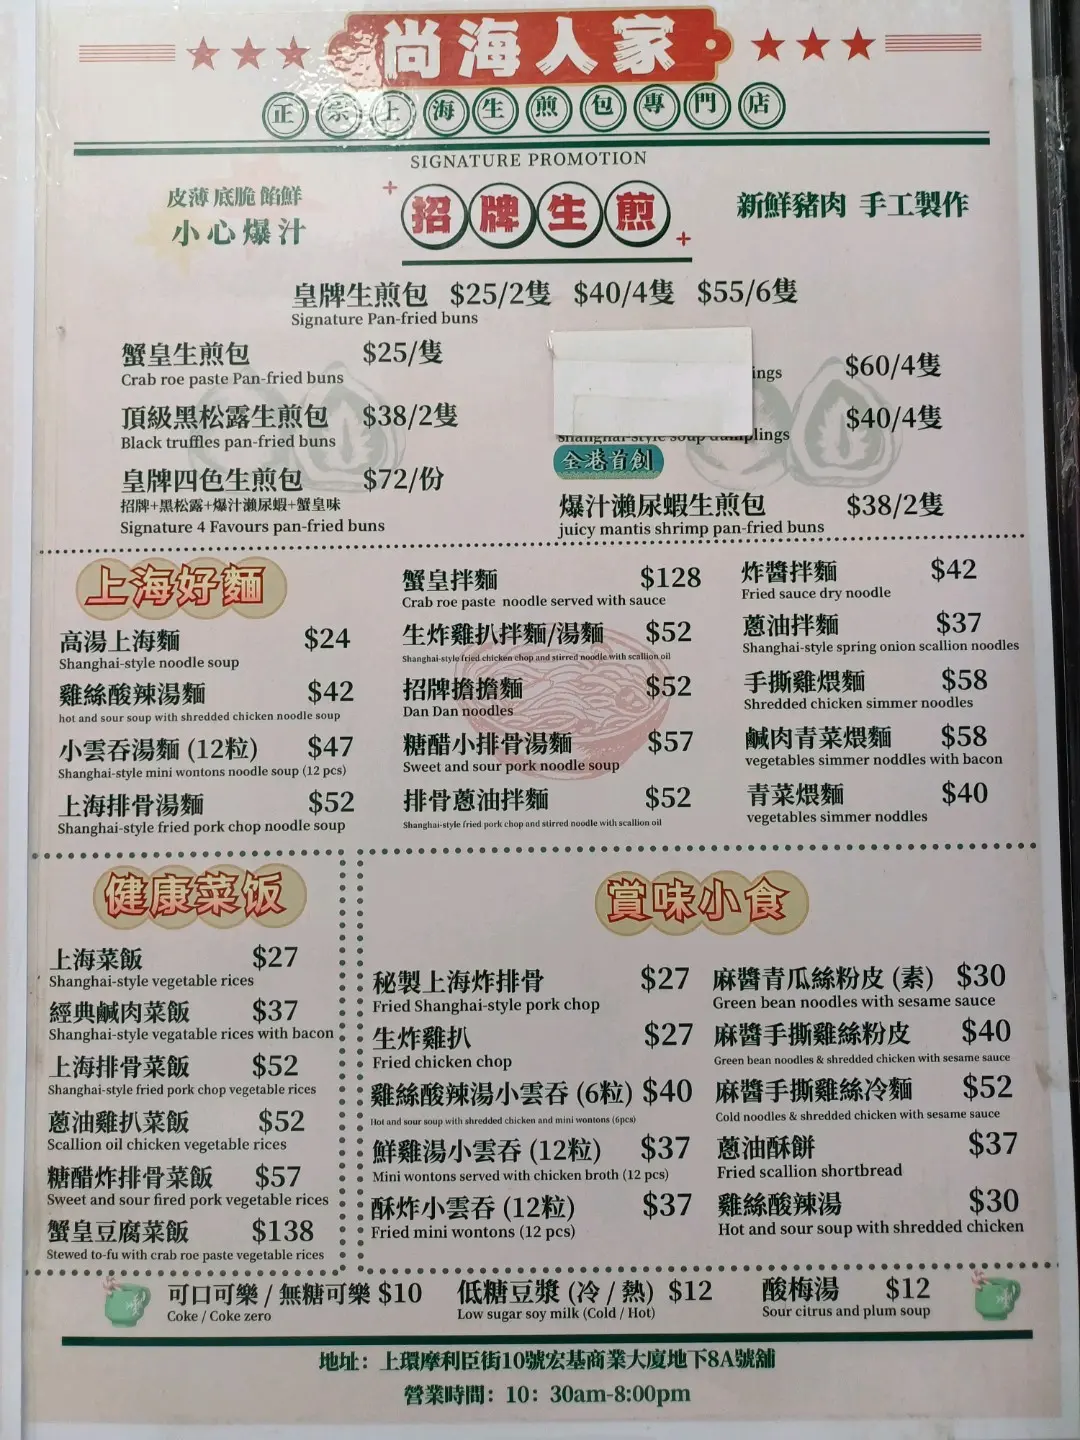 尚海人家
正宗上海生煎包專門店
SIGNATURE PROMOTION
皮薄 底脆 餡鮮
小心爆汁
招牌生煎
新鮮豬肉 手工製作
皇牌生煎包 $25/2隻 $40/4隻 $55/6隻
Signature Pan-fried buns
蟹皇生煎包 $25/隻
Crab roe paste Pan-fried buns
頂級黑松露生煎包 $38/2隻
Black truffles pan-fried buns
皇牌四色生煎包 $72/份
招牌+黑松露+爆汁瀨尿蝦+蟹皇味
Signature 4 Favours pan-fried buns
$60/4隻
ings
$40/4隻
shanghai-style soup dumplings
全港首創
爆汁瀨尿蝦生煎包 $38/2隻
juicy mantis shrimp pan-fried buns
上海好麵
高湯上海麵 $24
Shanghai-style noodle soup
雞絲酸辣湯麵 $42
hot and sour soup with shredded chicken noodle soup
小雲吞湯麵 (12粒) $47
Shanghai-style mini wontons noodle soup (12 pcs)
上海排骨湯麵 $52
Shanghai-style fried pork chop noodle soup
蟹皇拌麵 $128
Crab roe paste noodle served with sauce
生炸雞扒拌麵/湯麵 $52
Shanghai-style fried chicken chop and stirred noodle with scallion oil
招牌擔擔麵 $52
Dan Dan noodles
糖醋小排骨湯麵 $57
Sweet and sour pork noodle soup
排骨蔥油拌麵 $52
Shanghai-style fried pork chop and stirred noodle with scallion oil
炸醬拌麵 $42
Fried sauce dry noodle
蔥油拌麵 $37
Shanghai-style spring onion scallion noodles
手撕雞煨麵 $58
Shredded chicken simmer noodles
鹹肉青菜煨麵 $58
vegetables simmer noddles with bacon
青菜煨麵 $40
vegetables simmer noddles
健康菜饭
上海菜飯 $27
Shanghai-style vegetable rices
經典鹹肉菜飯 $37
Shanghai-style vegatable rices with bacon
上海排骨菜飯 $52
Shanghai-style fried pork chop vegetable rices
蔥油雞扒菜飯 $52
Scallion oil chicken vegetable rices
糖醋炸排骨菜飯 $57
Sweet and sour fired pork vegetable rices
蟹皇豆腐菜飯 $138
Stewed to-fu with crab roe paste vegetable rices
賞味小食
秘製上海炸排骨 $27
Fried Shanghai-style pork chop
生炸雞扒 $27
Fried chicken chop
雞絲酸辣湯小雲吞 (6粒) $40
Hot and sour soup with shredded chicken and mini wontons (6pcs)
鮮雞湯小雲吞 (12粒) $37
Mini wontons served with chicken broth (12 pcs)
酥炸小雲吞 (12粒) $37
Fried mini wontons (12 pcs)
麻醬青瓜絲粉皮 (素) $30
Green bean noodles with sesame sauce
麻醬手撕雞絲粉皮 $40
Green bean noodles & shredded chicken with sesame sauce
麻醬手撕雞絲冷麵 $52
Cold noodles & shredded chicken with sesame sauce
蔥油酥餅 $37
Fried scallion shortbread
雞絲酸辣湯 $30
Hot and sour soup with shredded chicken
可口可樂 / 無糖可樂 $10
Coke / Coke zero
低糖豆漿 (冷 / 熱) $12
Low sugar soy milk (Cold / Hot)
酸梅湯 $12
Sour citrus and plum soup
地址：上環摩利臣街10號宏基商業大廈地下8A號舖
營業時間：10：30am-8:00pm